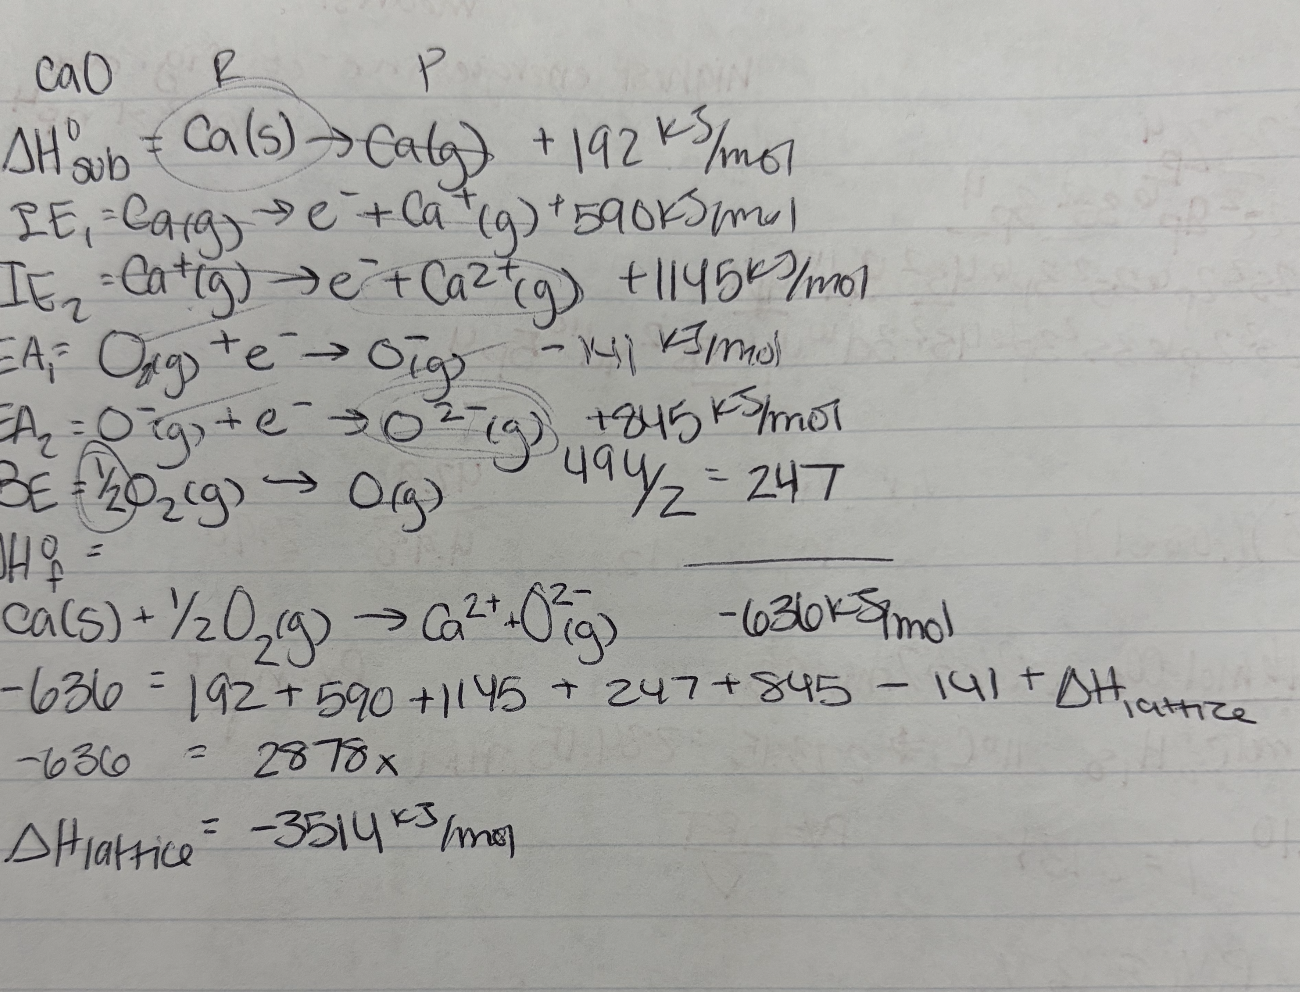 CaO R P
ΔH°sub = Ca(s) → Ca(g) +192 kJ/mol
IE₁ = Ca(g) → e⁻ + Ca⁺(g) +590 kJ/mol
IE₂ = Ca⁺(g) → e⁻ + Ca²⁺(g) +1145 kJ/mol
EA₁ = O(g) + e⁻ → O⁻(g) -141 kJ/mol
EA₂ = O⁻(g) + e⁻ → O²⁻(g) +845 kJ/mol
BE = ½O₂(g) → O(g) 494/2 = 247
ΔH°f =
Ca(s) + ½O₂(g) → Ca²⁺ + O²⁻(g) -636 kJ/mol
-636 = 192 + 590 + 1145 + 247 + 845 - 141 + ΔHlattice
-636 = 2878x
ΔHlattice = -3514 kJ/mol